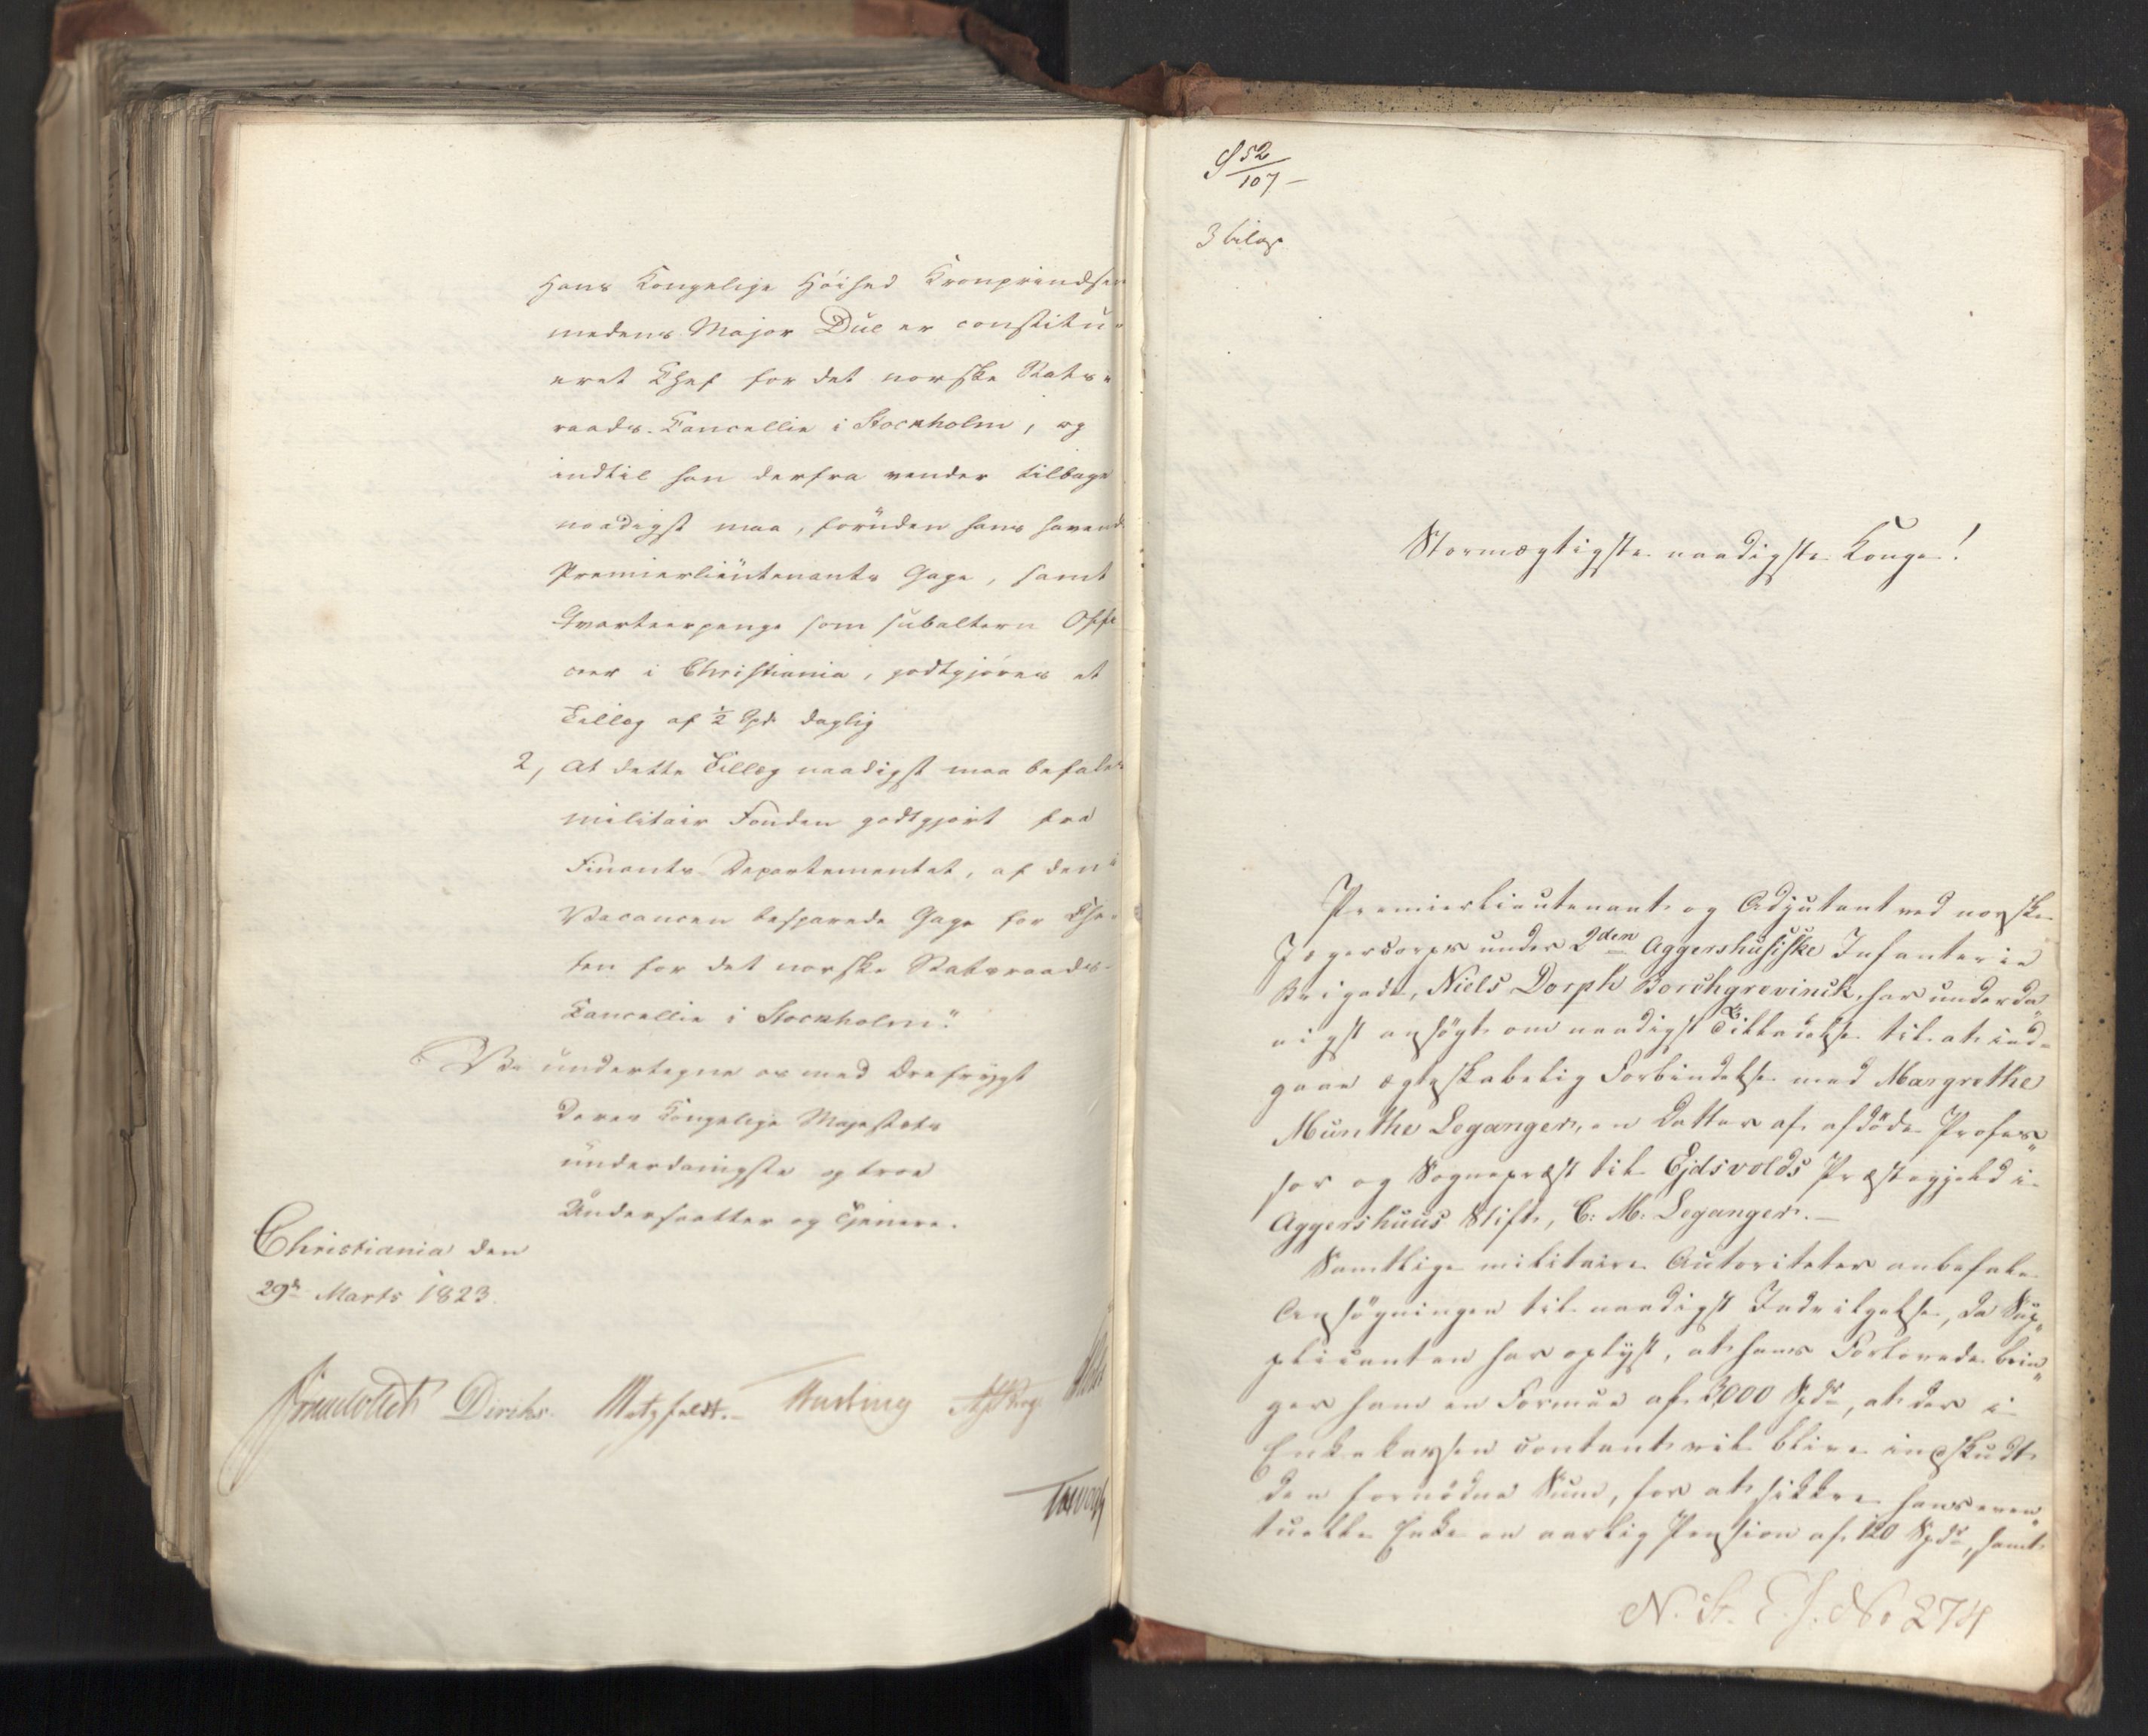 Hans Kongelige Høihed Kronprindsen
medens Major Due er constitu-
eret Chef for det norske Stats-
raads-Cancellie i Stockholm, og
indtil han derfra vender tilbage
naadigst maa, foruden hans havend
Premierlieutenants Gage, samt
Qvarteerpenge som subaltern Offi
ceer i Christiania, godtgjøres et
Tillæg af ½ Spd daglig
2, At dette Tillæg naadigst maa befales
militair Fonden godtgjort fra
Finants Departementet, af den i
Vacancen besparede Gage for Che-
fen for det norske Statsraads-
Cancellie i Stockholm."
Vi undertegne os med Ærefrygt
Deres Kongelige Majestæts
underdanigste og troe
Undersaatter og Tjenere.
Christiania den
29de Marts 1823.
Diriks. Motzfeldt.
S 52/107 -
3 bilag
Stormægtigste naadigste Konge!
Premierlieutenant og Adjutant ved norske
Jægercorps under 2den Aggershusiske Infanterie
Brigade, Niels Dorph Borchgrevinck, har underda„
nigst ansøgt om naadigst Tilladelse til at ind-
gaae ægteskabelig Forbindelse med Margrethe
Munthe Leganger, en Datter af afdøde Profes„
sor og Sognepræst til Ejdsvolds Præstegjeld i
Aggershuus Stift, C: M: Leganger. —
Samtlige militaire Autoriteter anbefale
Ansøgningen til naadigst Indvilgelse, da Sup„
plicanten har oplyst, at hans Forlovede brin„
ger ham en Formue af 3000 Spdr, at der i
Enkekassen contant vil blive inskudt
den fornødne Sum, for at sikkre hans even„
tuelle Enke en aarlig Pension af 120 Spdr, samt
N. St. E. J. No 274